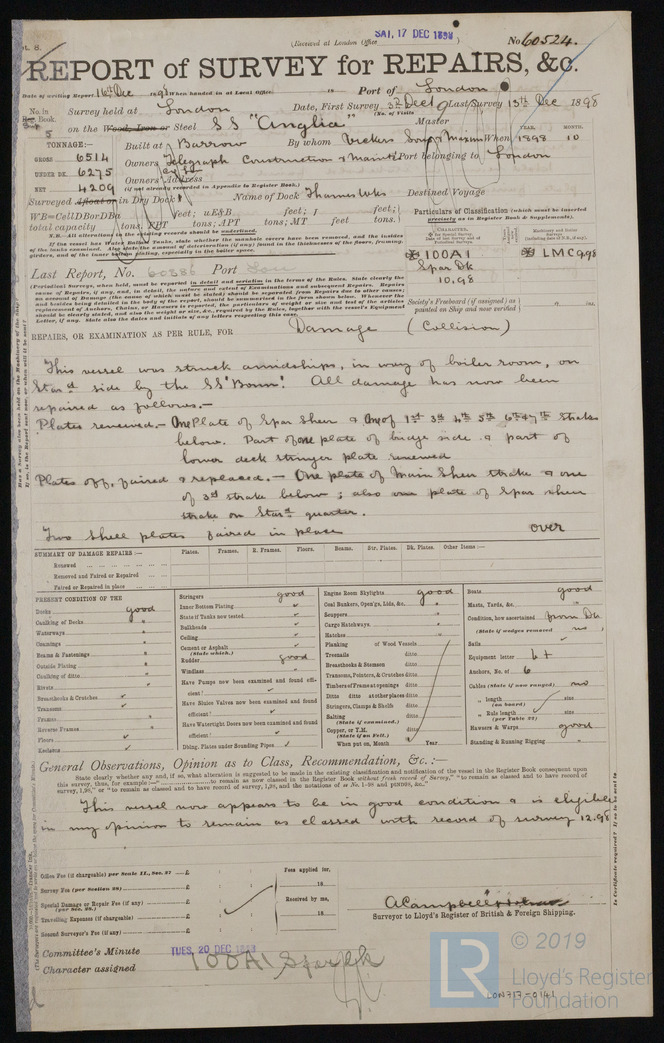 (Received at London Office SAT, 17 DEC 1898 )
No 60524.
REPORT of SURVEY for REPAIRS, &c.
Date of writing Report 16th Dec 1898 When handed in at Local Office 18 Port of London
No. in Reg. Book. Survey held at London Date, First Survey 3rd Dec Last Survey 15th Dec 1898
(No. of Visits
5 on the Wood, Iron or Steel SS "Anglia" Master
TONNAGE:— Built at Barrow By whom Vickers Sons & Maxim When 1898 10
YEAR. MONTH.
GROSS 6514 Owners Telegraph Construction & Maint Port belonging to London
UNDER DK. 6275 Owners' Address
NET 4209 (if not already recorded in Appendix to Register Book.)
Surveyed Afloat or in Dry Dock Name of Dock Thames Wks Destined Voyage
WB=CellDBorDBa feet; uE&B feet; f feet;
total capacity tons, FPT tons; APT tons; MT feet tons.
Particulars of Classification (which must be inserted precisely as in Register Book & Supplements).
N.B. All alterations in the existing records should be underlined.
If the vessel has Water Ballast Tanks, state whether the manhole covers have been removed, and the insides of the tanks examined. Also state the amount of deterioration (if any) found in the thicknesses of the floors, framing, girders, and of the inner bottom plating, especially in the boiler space.
100A1 LMC 9.98
Spar Dk
10.98
Last Report, No. 60386 Port Lon
(Periodical Surveys, when held, must be reported in detail and seriatim in the terms of the Rules. State clearly the cause of Repairs, if any, and, in detail, the nature and extent of Examinations and consequent Repairs. Repairs on account of Damage (the cause of which must be stated) should be separated from Repairs due to other causes; and besides being detailed in the body of the report, should be summarised in the form shown below.
Society's Freeboard (if assigned) as painted on Ship and now verified
REPAIRS, OR EXAMINATION AS PER RULE, FOR Damage (Collision)
This vessel was struck amidships, in way of boiler room, on
Starbd side by the SS "Bonn". All damage has now been
repaired as follows.—
Plates renewed.— One Plate of Spar Sheer & One of 1st 3rd 4th 5th 6th & 7th Strake
below. Part of one plate of bridge side & part of
lower deck stringer plate renewed
Plates off, faired & replaced.— One plate of Main Sheer strake & one
of 3rd strake below; also one plate of Spar sheer
strake on Starbd quarter.
Two Shell plates faired in place over
SUMMARY OF DAMAGE REPAIRS:— Plates. Frames. R. Frames. Floors. Beams. Str. Plates. Dk. Plates. Other Items:—
Renewed
Removed and Faired or Repaired
Faired or Repaired in place
PRESENT CONDITION OF THE
Decks good
Caulking of Decks "
Waterways "
Coamings "
Beams & Fastenings "
Outside Plating "
Caulking of ditto "
Rivets "
Breasthooks & Crutches ✓
Transoms ✓
Frames "
Reverse Frames "
Floors ✓
Keelsons ✓
Stringers good
Inner Bottom Plating ✓
State if Tanks now tested ✓
Bulkheads ✓
Ceiling ✓
Cement or Asphalt ✓
(State which.)
Rudder good
Windlass "
Have Pumps now been examined and found efficient? ✓
Have Sluice Valves now been examined and found efficient? ✓
Have Watertight Doors now been examined and found efficient? ✓
Dblng. Plates under Sounding Pipes ✓
Engine Room Skylights good
Coal Bunkers, Open'gs, Lids, &c. "
Scuppers "
Cargo Hatchways "
Hatches "
Planking of Wood Vessels
Treenails ditto
Breasthooks & Stemson ditto
Transoms, Pointers, & Crutches ditto
Timbers of Frame at openings ditto
Ditto ditto at other places ditto
Stringers, Clamps & Shelfs ditto
Salting ditto
(State if examined.)
Copper, or Y.M. ditto
(State if on Felt.)
When put on, Month Year
Boats good
Masts, Yards, &c. "
Condition, how ascertained from Dk
(State if wedges removed no
Sails ✓
Equipment letter b+
Anchors, No. of 6
Cables (State if now ranged) no
" length size
(on board)
" Rule length size
(per Table 22)
Hawsers & Warps good
Standing & Running Rigging "
General Observations, Opinion as to Class, Recommendation, &c.:—
State clearly whether any and, if so, what alteration is suggested to be made in the existing classification and notification of the vessel in the Register Book consequent upon this survey
This vessel now appears to be in good condition & is eligible
in my opinion to remain as classed with record of survey 12.98
Office Fee (if chargeable) per Scale II., Sec. 27 £
Survey Fee (per Section 28) £
Special Damage or Repair Fee (if any) £
(per Sec. 28.)
Travelling Expenses (if chargeable) £
Second Surveyor's Fee (if any) £
Fees applied for,
18
Received by me,
18
A Campbell
Surveyor to Lloyd's Register of British & Foreign Shipping.
Committee's Minute TUES, 20 DEC 1898
Character assigned 100A1 Spar Dk
LR
© 2019
Lloyd's Register
Foundation
LON717-0141